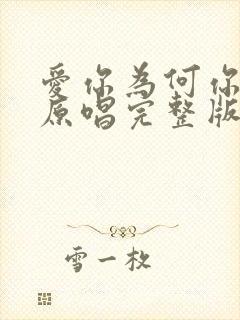 愛你為何你
原唱完整版
雪一枚